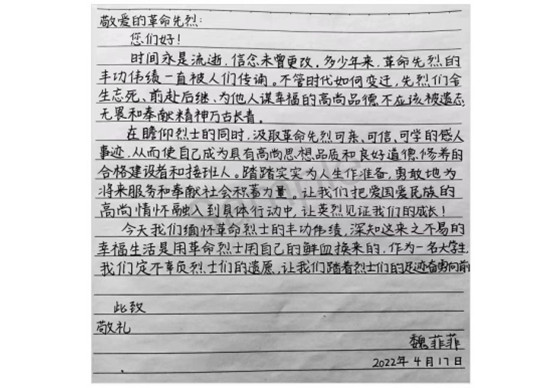 敬爱的革命先烈：
您们好！
时间亦是流逝，信念未曾更改，多少年来，革命先烈的
丰功伟绩一直被人们传诵。不管时代如何变迁，先烈们舍
生忘死、前赴后继、为他人谋幸福的高尚品德不应该被遗忘，
无畏和奉献精神万古长青。
在瞻仰烈士的同时，汲取革命先烈可亲、可信、可学的感人
事迹，从而使自己成为具有高尚思想品质和良好道德修养的
合格建设者和接班人。踏踏实实为人生作准备，勇敢地为
将来服务和奉献社会积蓄力量。让我们把爱国爱民族的
高尚情怀融入到具体行动中，让英烈见证我们的成长！
今天我们缅怀革命烈士的丰功伟绩，深知这来之不易的
幸福生活是用革命烈士用自己的鲜血换来的，作为一名大学生，
我们定不辜负烈士们的遗愿，让我们踏着烈士们的足迹奋勇向前
此致
敬礼
魏菲菲
2022年4月17日